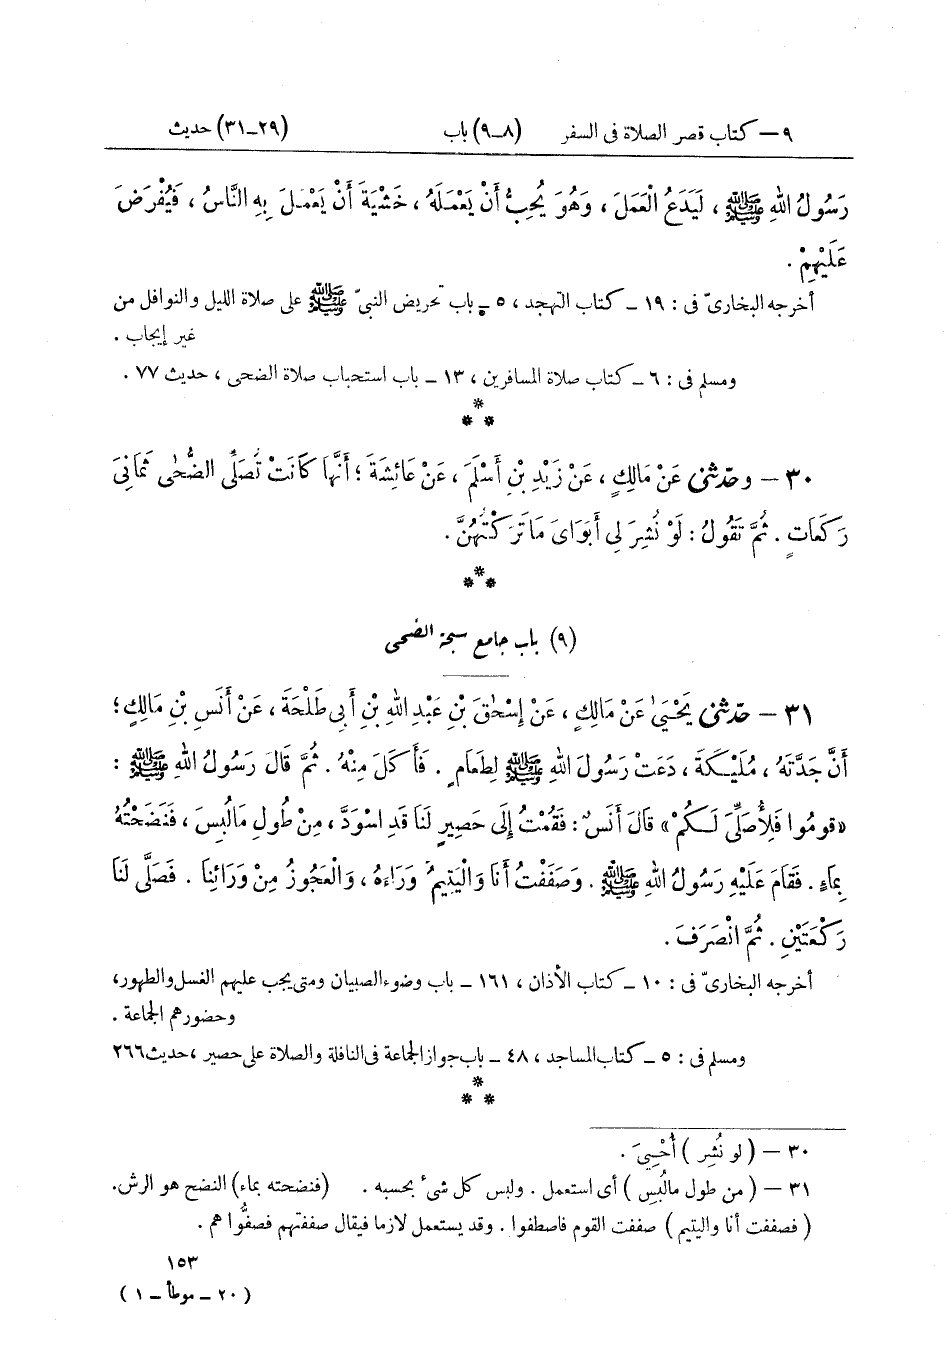 ٩ – كتاب قصر الصلاة فى السفر (٨–٩) باب (٢٩–٣١) حديث
رَسُولُ اللهِ ﷺ ، لَيَدَعُ الْعَمَلَ ، وَهُوَ يُحِبُّ أَنْ يَعْمَلَهُ ، خَشْيَةَ أَنْ يَعْمَلَ بِهِ النَّاسُ ، فَيُفْرَضَ
عَلَيْهِمْ .
أخرجه البخارىّ فى : ١٩ – كتاب التهجد ، ٥ – باب تحريض النبىّ ﷺ على صلاة الليل والنوافل من
غير إيجاب .
ومسلم فى : ٦ – كتاب صلاة المسافرين ، ١٣ – باب استحباب صلاة الضحى ، حديث ٧٧ .
***
٣٠ – وحدّثنى عَنْ مَالِكٍ ، عَنْ زَيْدِ بْنِ أَسْلَمَ ، عَنْ عَائِشَةَ ؛ أَنَّهَا كَانَتْ تُصَلِّى الضُّحٰى ثَمَانِىَ
رَكَعَاتٍ . ثُمَّ تَقُولُ : لَوْ نُشِرَ لِى أَبَوَاىَ مَا تَرَكْتُهُنَّ .
***
(٩) باب جامع سبحة الضحى
٣١ – حدّثنى يَحْيَىٰ عَنْ مَالِكٍ ، عَنْ إِسْحٰقَ بْنِ عَبْدِ اللهِ بْنِ أَبِى طَلْحَةَ ، عَنْ أَنَسِ بْنِ مَالِكٍ ؛
أَنَّ جَدَّتَهُ ، مُلَيْكَةَ ، دَعَتْ رَسُولَ اللهِ ﷺ لِطَعَامٍ . فَأَكَلَ مِنْهُ . ثُمَّ قَالَ رَسُولُ اللهِ ﷺ :
«قومُوا فَلِأُصَلِّىَ لَكُمْ» قَالَ أَنَسٌ : فَقُمْتُ إِلَى حَصِيرٍ لَنَا قَدِ اسْوَدَّ ، مِنْ طُولِ مَا لُبِسَ ، فَنَضَحْتُهُ
بِمَاءٍ . فَقَامَ عَلَيْهِ رَسُولُ اللهِ ﷺ . وَصَفَفْتُ أَنَا وَالْيَتِيمُ وَرَاءَهُ ، وَالْعَجُوزُ مِنْ وَرَائِنَا . فَصَلَّى لَنَا
رَكْعَتَيْنِ . ثُمَّ انْصَرَفَ .
أخرجه البخارىّ فى : ١٠ – كتاب الأذان ، ١٦١ – باب وضوء الصبيان ومتى يجب عليهم الغسل والطهور،
وحضورهم الجماعة .
ومسلم فى : ٥ – كتاب المساجد ، ٤٨ – باب جواز الجماعة فى النافلة والصلاة على حصير ، حديث ٢٦٦
***
٣٠ – ( لو نُشِر ) أُحْيِىَ .
٣١ – ( من طول مالُبِس ) أى استعمل . ولبس كل شىء بحسبه . (فنضحته بماء) النضح هو الرش.
( فصففت أنا واليتيم ) صففت القوم فاصطفوا . وقد يستعمل لازما فيقال صففتهم فصفُّوا هم .
١٥٣
( ٢٠ – موطأ – ١ )